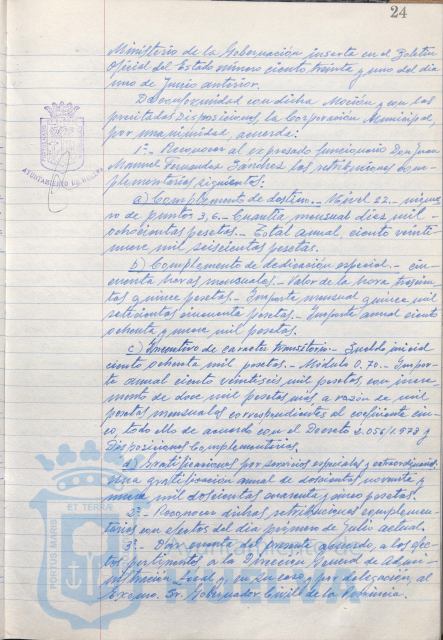 24
Ministerio de la Gobernación inserta en el Boletín
Oficial del Estado número ciento treinta y uno del día
uno de Junio anterior.
De conformidad con dicha Moción y con las
precitadas Disposiciones, la Corporación Municipal,
por unanimidad, acuerda:
1º.- Reconocer al expresado funcionario Don Juan
Manuel Fernández Sánchez las retribuciones com-
plementarias siguientes:
a) Complemento de destino.- Nivel 22.- núme-
ro de puntos 3,6.- Cuantía mensual diez mil
ochocientas pesetas.- Total anual, ciento veinti-
nueve mil seiscientas pesetas.
b) Complemento de dedicación especial.- cin-
cuenta horas mensuales.- Valor de la hora trescien-
tas quince pesetas.- Importe mensual quince mil
setecientas cincuenta pesetas.- Importe anual ciento
ochenta y nueve mil pesetas.
c) Incentivo de carácter transitorio.- Sueldo inicial
ciento ochenta mil pesetas.- Módulo 0,70.- Impor-
te anual ciento veintiseis mil pesetas, con incre-
mento de doce mil pesetas más a razón de mil
pesetas mensuales correspondientes al coeficiente cin-
co, todo ello de acuerdo con el Decreto 2.056/1.973 y
Disposiciones Complementarias.
d) Gratificaciones por servicios especiales y extraordinarios
una gratificación anual de doscientas noventa y
nueve mil doscientas cuarenta y cinco pesetas.
2º.- Reconocer dichas retribuciones complemen-
tarias con efectos del día primero de Julio actual.
3º.- Dar cuenta del presente acuerdo, a los efec-
tos pertinentes a la Dirección General de Admi-
nistración Local y, en su caso, por delegación, al
Excmo. Sr. Gobernador Civil de la Provincia.
AYUNTAMIENTO DE HUELVA
PORTUS MARIS
ET TERRAE